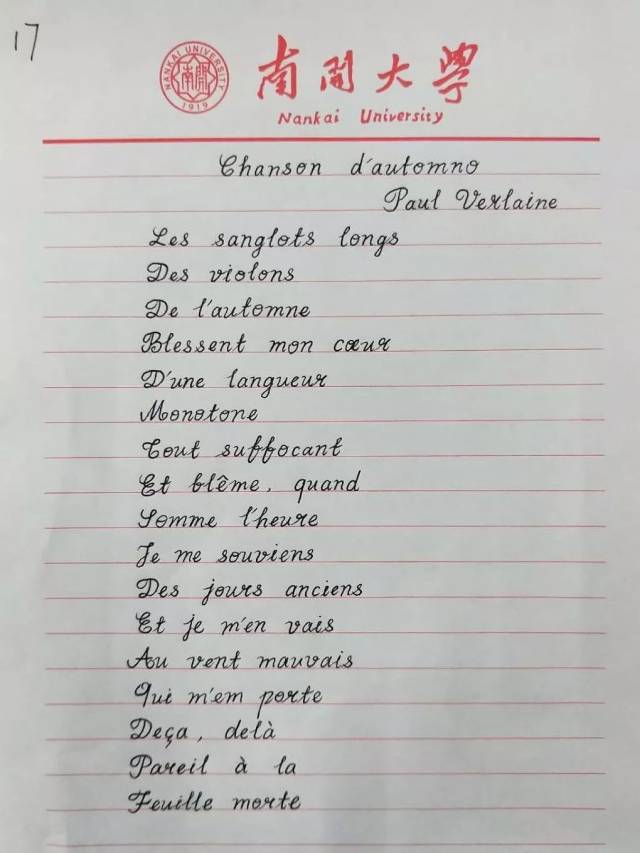 17
NANKAI UNIVERSITY
南開
1919
南開大學
Nankai University
Chanson d'automno
Paul Verlaine
Les sanglots longs
Des violons
De l'automne
Blessent mon cœur
D'une langueur
Monotone
Tout suffocant
Et blême, quand
Somme l'heure
Je me souviens
Des jours anciens
Et je m'en vais
Au vent mauvais
Qui m'em porte
Deça, delà
Pareil à la
Feuille morte